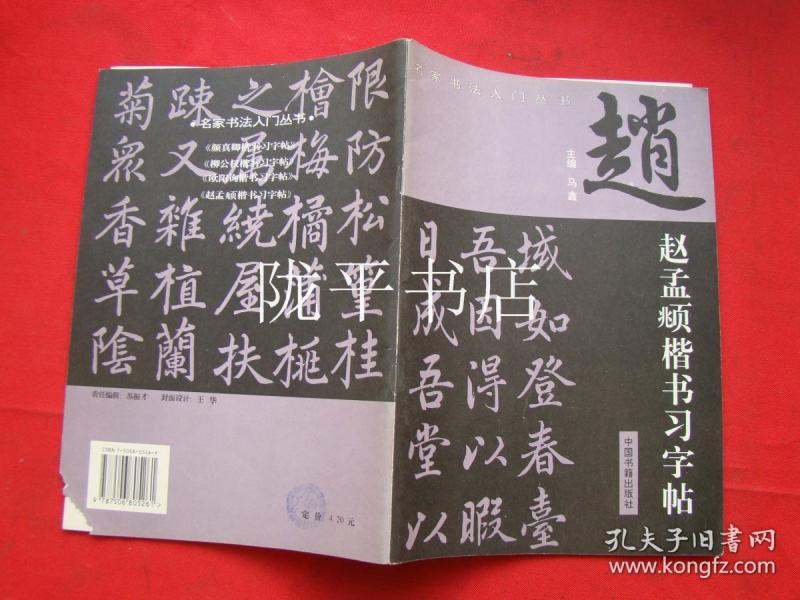 名家书法入门丛书
趙
主编 马鑫
赵孟頫楷书习字帖
中国书籍出版社
域如登春臺
吾因得以暇
日成吾堂以
限防松篁桂
檜梅橘蒲桃
之尾繞屋扶
踈又雜植蘭
菊眾香草陰
·名家书法入门丛书·
《颜真卿楷书习字帖》
《柳公权楷书习字帖》
《欧阳询楷书习字帖》
《赵孟頫楷书习字帖》
责任编辑：苏振才 封面设计：王 华
ISBN 7-5068-0526-X
9 787506 805261 >
定 价 4.20 元
陇平书店
孔夫子旧书网
www.kongfz.com